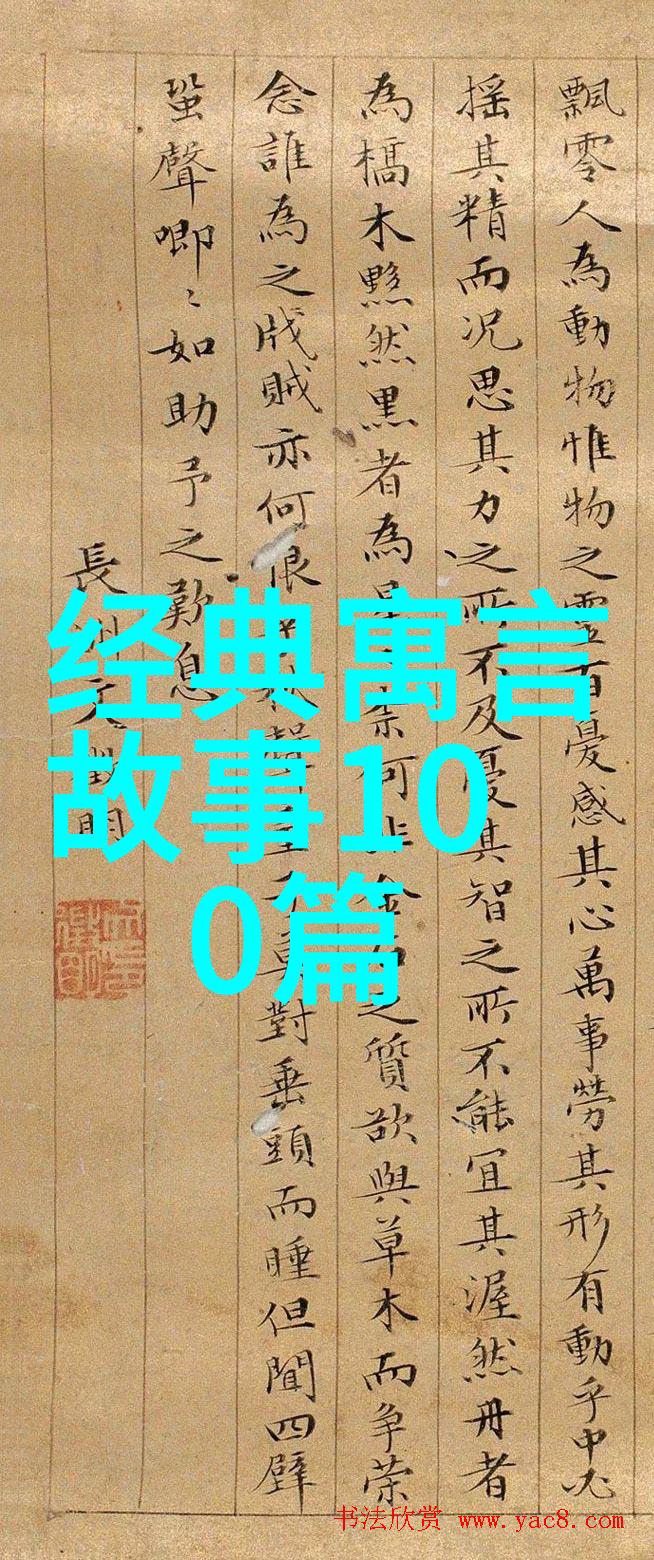 飄零人為動物惟物之靈百憂感其心萬事勞其形有動乎中必
摇其精而况思其力之所不及憂其智之所不能宜其渥然丹者
為橋木黟然黑者為星奈何非金石之質欲與草木而争荣
念誰為之戕賊亦何恨乎秋聲童子莫對垂頭而睡但聞四壁
蛩聲唧〻如助予之歎息
長洲文徵明
经典寓言
故事10
0篇
书法欣赏 www.yac8.com